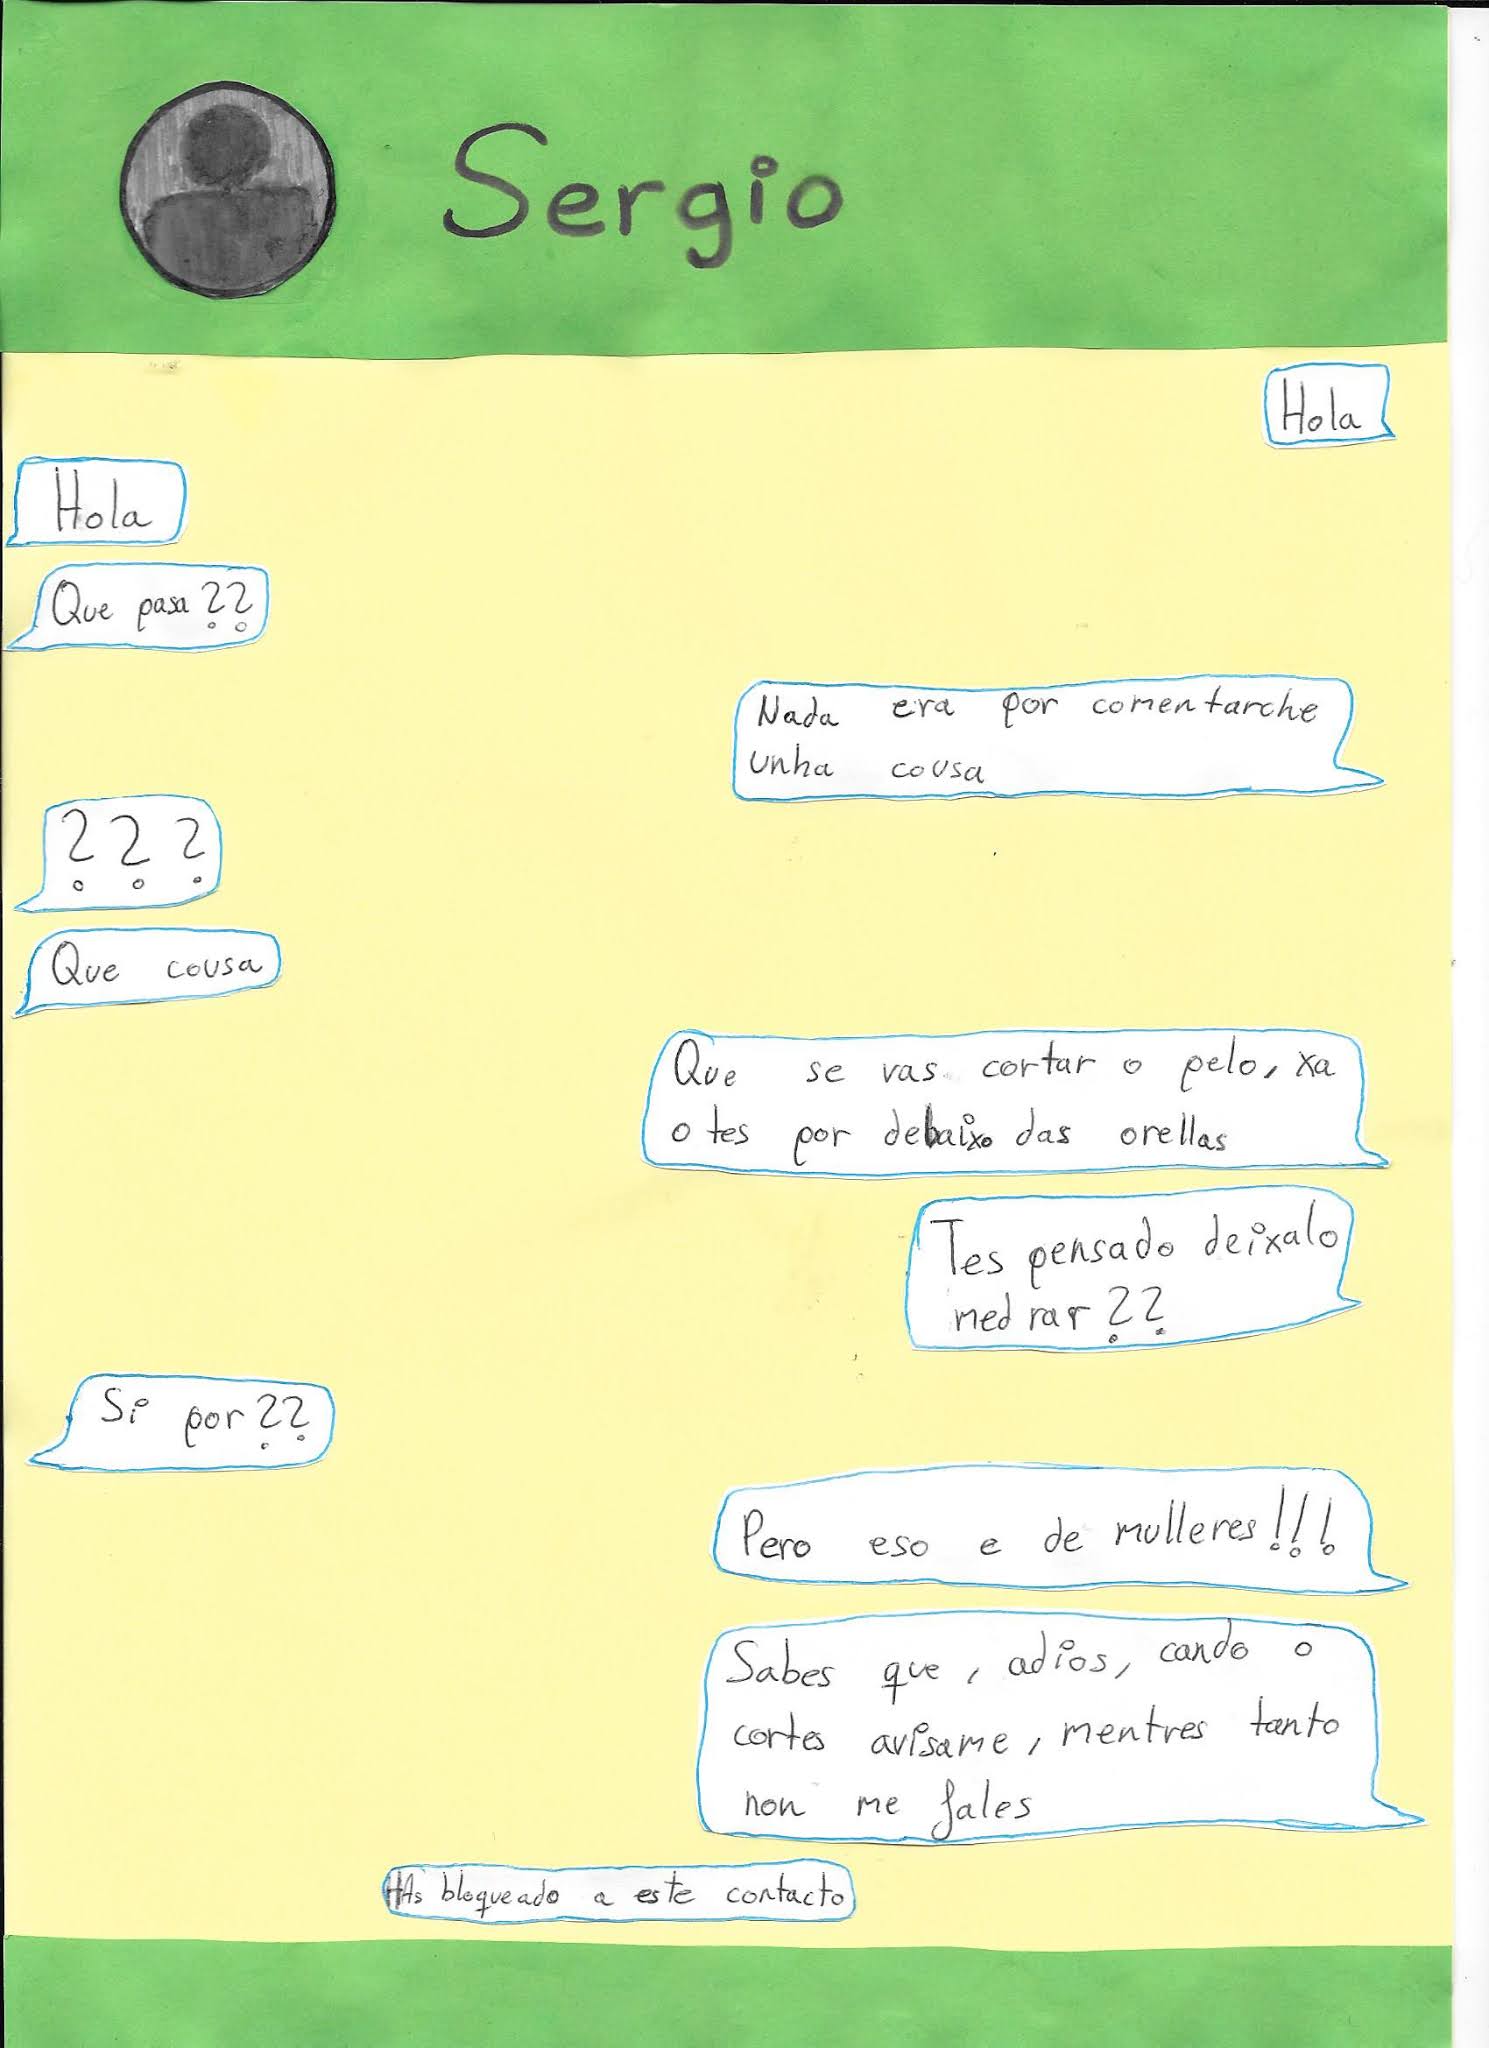 Sergio
Hola
Hola
Que pasa??
Nada era por comentarche
unha cousa
???
Que cousa
Que se vas cortar o pelo, xa
o tes por debaixo das orellas
Tes pensado deixalo
medrar??
Si por??
Pero eso e de mulleres!!!
Sabes que, adios, cando o
cortes avisame, mentres tanto
non me fales
HAs bloqueado a este contacto